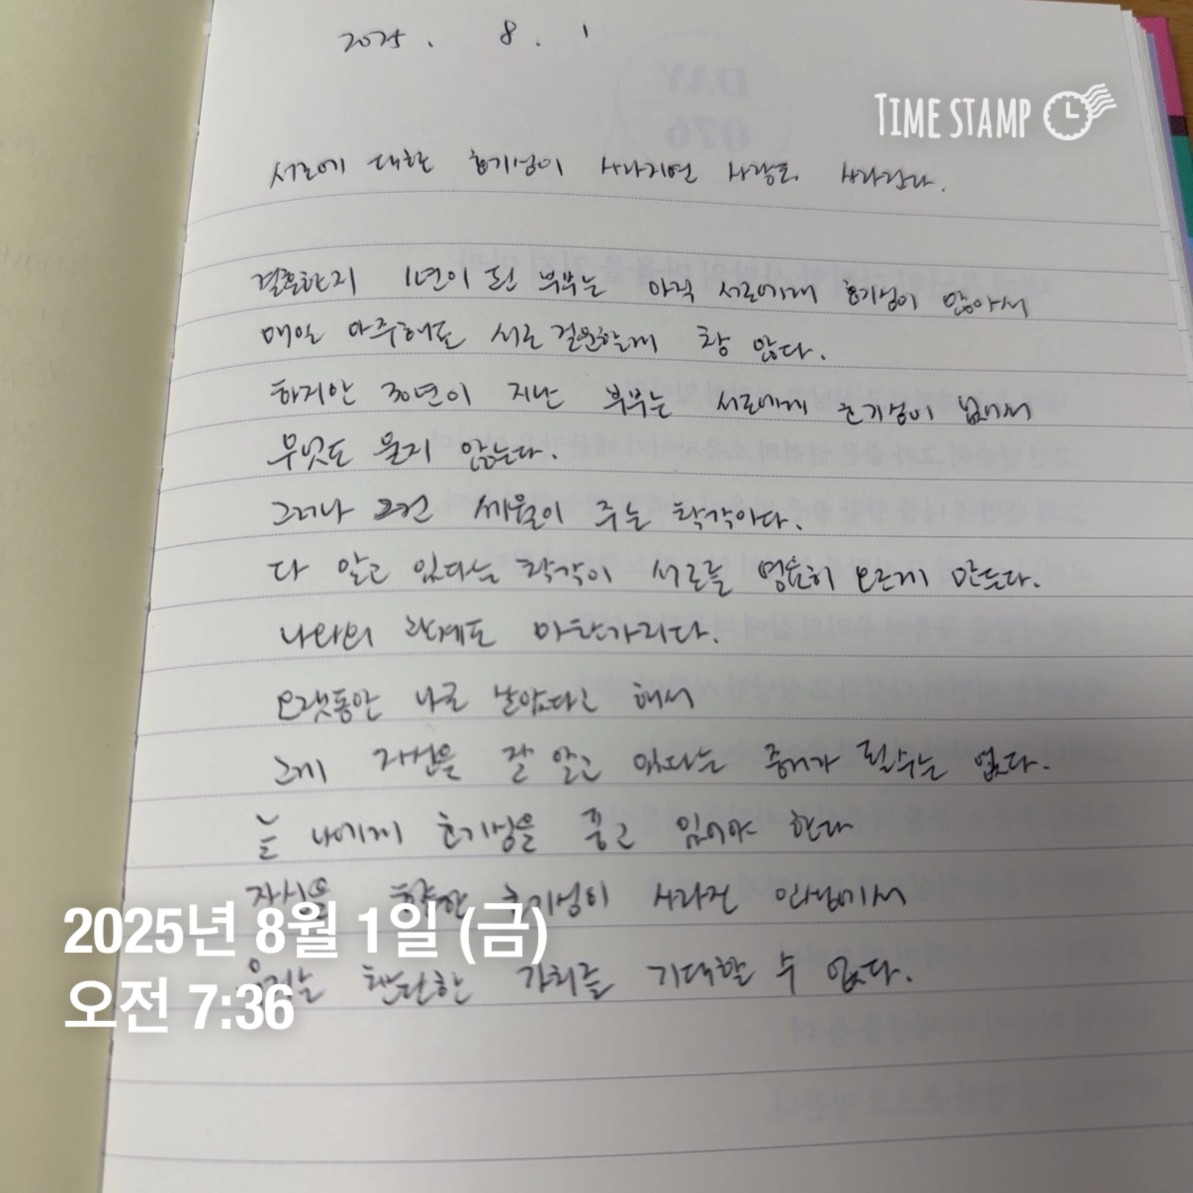 2025. 8. 1
TIME STAMP
서로에 대한 호기심이 사라지면 사랑도 사라진다.
결혼한지 1년이 된 부부는 아직 서로에게 호기심이 많아서
매일 마주해도 서로 질문할게 참 많다.
하지만 30년이 지난 부부는 서로에게 호기심이 없어서
무엇도 묻지 않는다.
그러나 그건 세월이 주는 착각이다.
다 알고 있다는 착각이 서로를 영원히 모르게 만든다.
나와의 관계도 마찬가지다.
오랫동안 나로 살았다고 해서
그게 자신을 잘 알고 있다는 증거가 될수는 없다.
늘 나에게 호기심을 품고 있어야 한다
자신을 향한 호기심이 사라진 인생에서
우리는 찬란한 가치를 기대할 수 없다.
2025년 8월 1일 (금)
오전 7:36